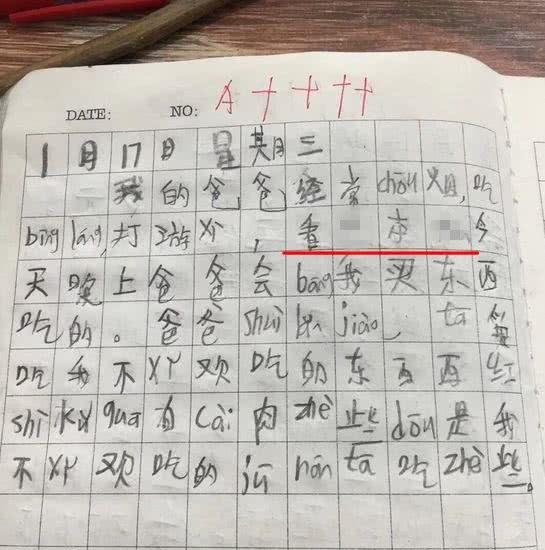 DATE: NO: A++++
1月17日 星其月三
我的爸爸经常chōu烟,吃
bīng láng,打游戏,看 本 今
天晚上爸爸会bāng我买东西
吃的。爸爸shuì jiào ta
吃我不欢吃的东西西红
shì kǔ guā有cài肉zhè些dōu是我
不欢吃的jū rán tā吃zhè些。